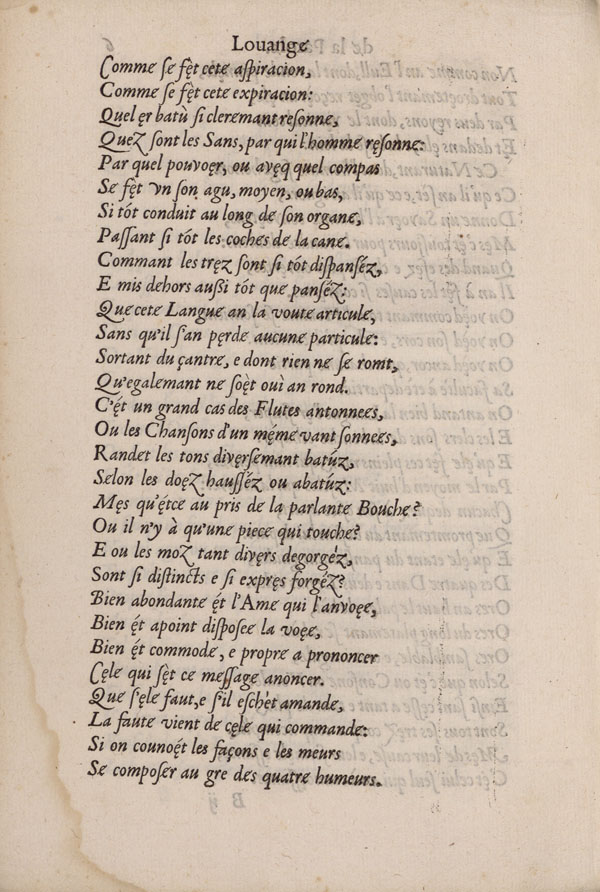 Louange
Comme ſe fęt cete aſpiracion,
Comme ſe fęt cete expiracion:
Quel ęr batù ſi cleremant reſonne,
Quez ſont les Sans, par qui l'homme reſonne:
Par quel pouvoęr, ou avęq quel compas
Se fęt vn ſon agu, moyen, ou bas,
Si tót conduit au long de ſon organe,
Paſſant ſi tót les coches de la cane.
Commant les tręz ſont ſi tót diſpanſéz,
E mis dehors außi tót que panſéz:
Que cete Langue an la voute articule,
Sans qu'il ſ'an pęrde aucune particule:
Sortant du çantre, e dont rien ne ſe romt,
Qu'egalemant ne ſoèt ouì an rond.
C'ét un grand cas des Flutes antonnees,
Ou les Chanſons d'un méme vant ſonnees,
Randet les tons divęrſemant batúz,
Selon les doęz hauſſéz ou abatúz:
Męs qu'étce au pris de la parlante Bouche?
Ou il n'y à qu'une piece qui touche?
E ou les moz tant divęrs degorgéz,
Sont ſi diſtincts e ſi expręs forgéz?
Bien abondante ęt l'Ame qui l'anvoęe,
Bien ęt apoint diſpoſee la voęe,
Bien ęt commode, e propre a prononcer
Cęle qui ſęt ce meſſage anoncer.
Que ſ'ęle faut, e ſ'il eſchèt amande,
La faute vient de cęle qui commande:
Si on counoęt les façons e les meurs
Se compoſer au gre des quatre humeurs.